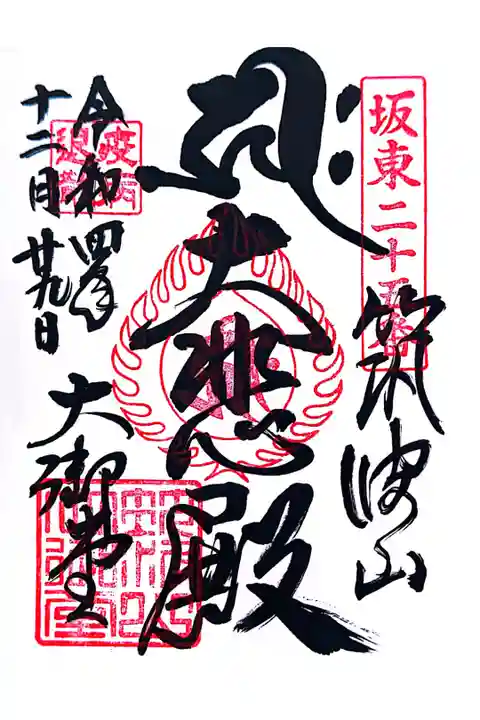 坂東二十五番
筑波山
大悲殿
疫病
退散
令和四年
十二月廿九日
大御堂